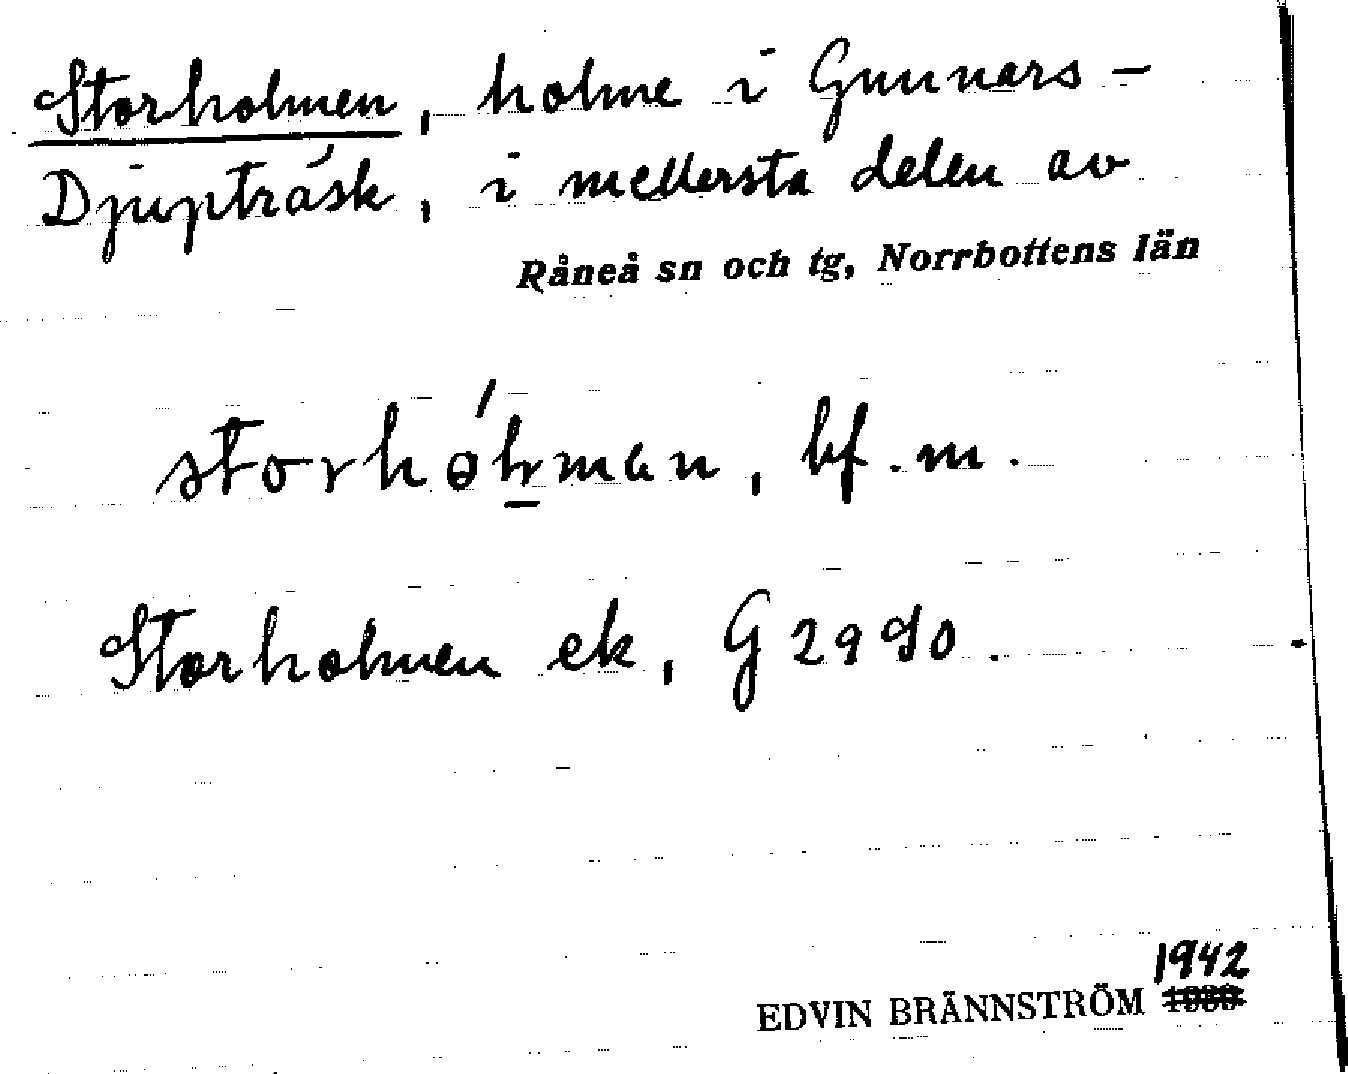 Storholmen, holme i Gunnars-
Djupträsk, i mellersta delen av
Råneå sn och tg, Norrbottens län
storhəl̠man, bf. m.
Storholmen ek, G 2990.
1942
EDVIN BRÄNNSTRÖM